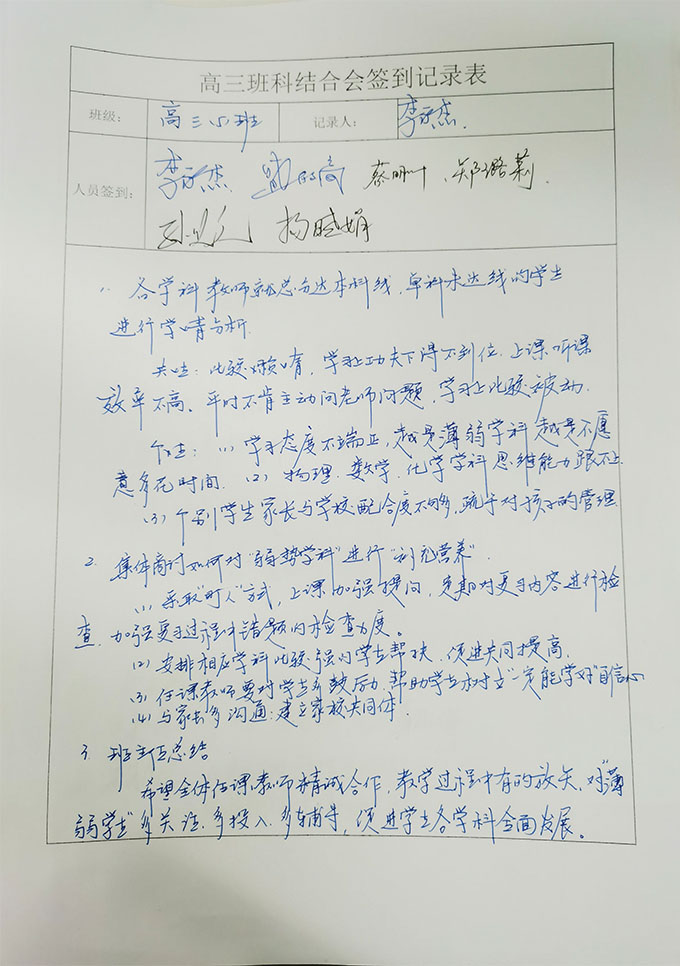 高三班科结合会签到记录表
班级： 高三(5)班 记录人： 李杰
人员签到： 李杰 蔡叶 、郑璐莉
杨晓娟
1、各学科教师就总分达本科线，单科未达线的学生
进行学情分析.
共性：比较懒惰，学习上功夫下得不到位，上课听课
效率不高、平时不肯主动问老师问题，学习上比较被动.
个性：(1) 学习态度不端正，越是薄弱学科越是不愿
意多花时间. (2) 物理、数学、化学学科思维能力跟不上
(3) 个别学生家长与学校配合度不够，疏于对孩子的管理.
2. 集体商讨如何对“弱势学科”进行“补充营养”.
(1) 采取“盯人”方式，上课加强提问，定期对复习内容进行检
查，加强复习过程中错题的检查力度。
(2) 安排相应学科比较强的学生帮扶，促进共同提高.
(3) 任课教师要对学生多鼓励，帮助学生树立“一定能学好”自信心
(4) 与家长多沟通：建立家校共同体.
3. 班主任总结
希望全体任课教师精诚合作，教学过程中有的放矢，对“薄
弱学生”多关注、多投入、多辅导，促进学生各学科全面发展。